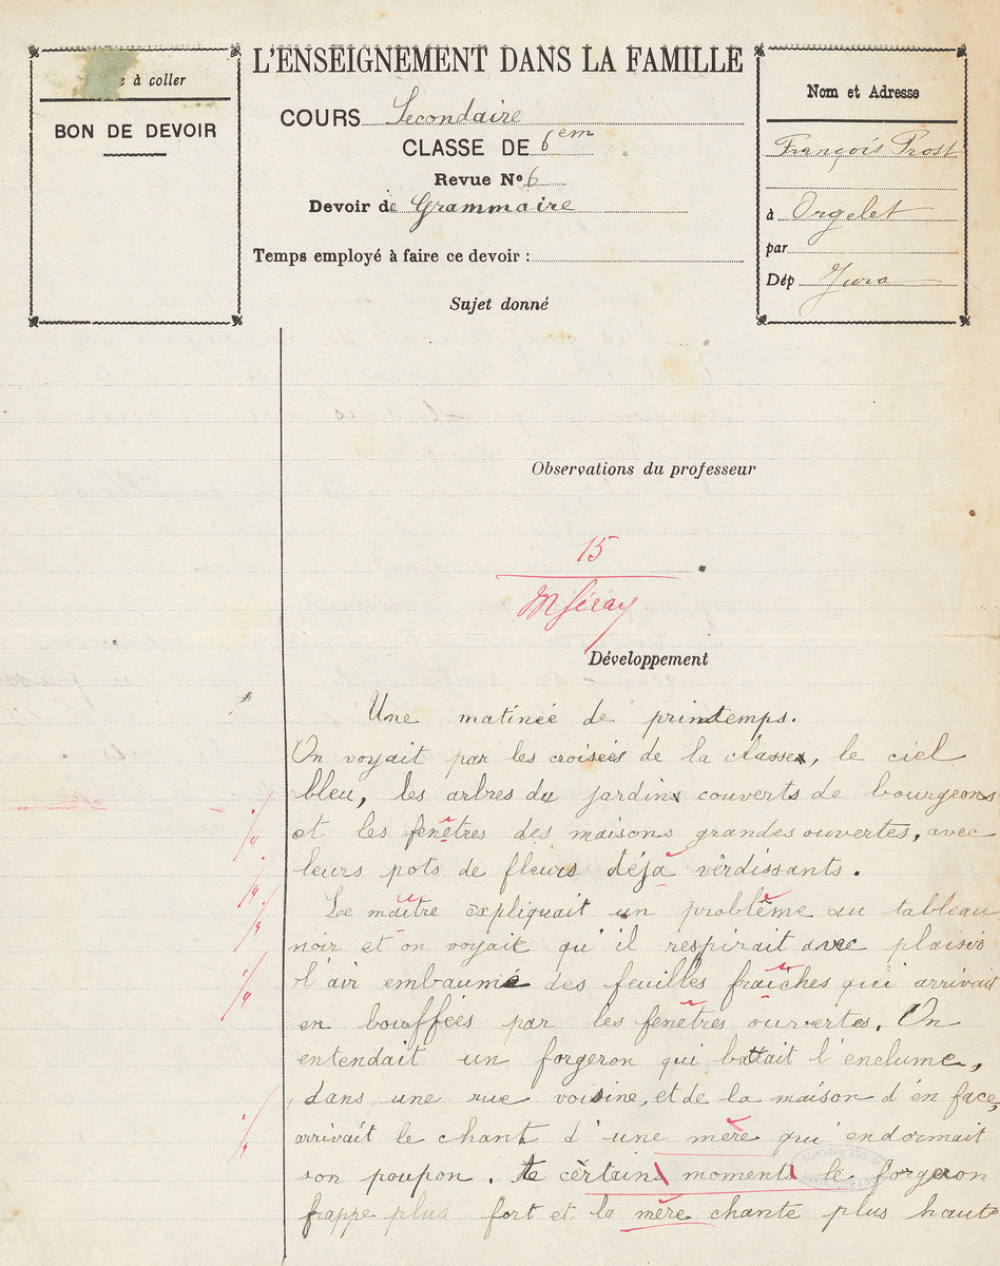 à coller
BON DE DEVOIR
L'ENSEIGNEMENT DANS LA FAMILLE
COURS Secondaire
CLASSE DE 6em
Revue N° 6
Devoir de Grammaire
Temps employé à faire ce devoir :
Nom et Adresse
François Prost
à Orgelet
par
Dép Jura
Sujet donné
Observations du professeur
15
Développement
Une matinée de printemps.
On voyait par les croisées de la classe, le ciel
bleu, les arbres du jardin couverts de bourgeons
et les fenêtres des maisons grandes ouvertes, avec
leurs pots de fleurs déjà verdissants.
Le maître expliquait un problème au tableau
noir et on voyait qu'il respirait avec plaisir
l'air embaumé des feuilles fraîches qui arrivait
en bouffées par les fenêtres ouvertes. On
entendait un forgeron qui battait l'enclume,
dans une rue voisine, et de la maison d'en face,
arrivait le chant d'une mère qui endormait
son poupon. A certains moments le forgeron
frappe plus fort et la mère chante plus haut